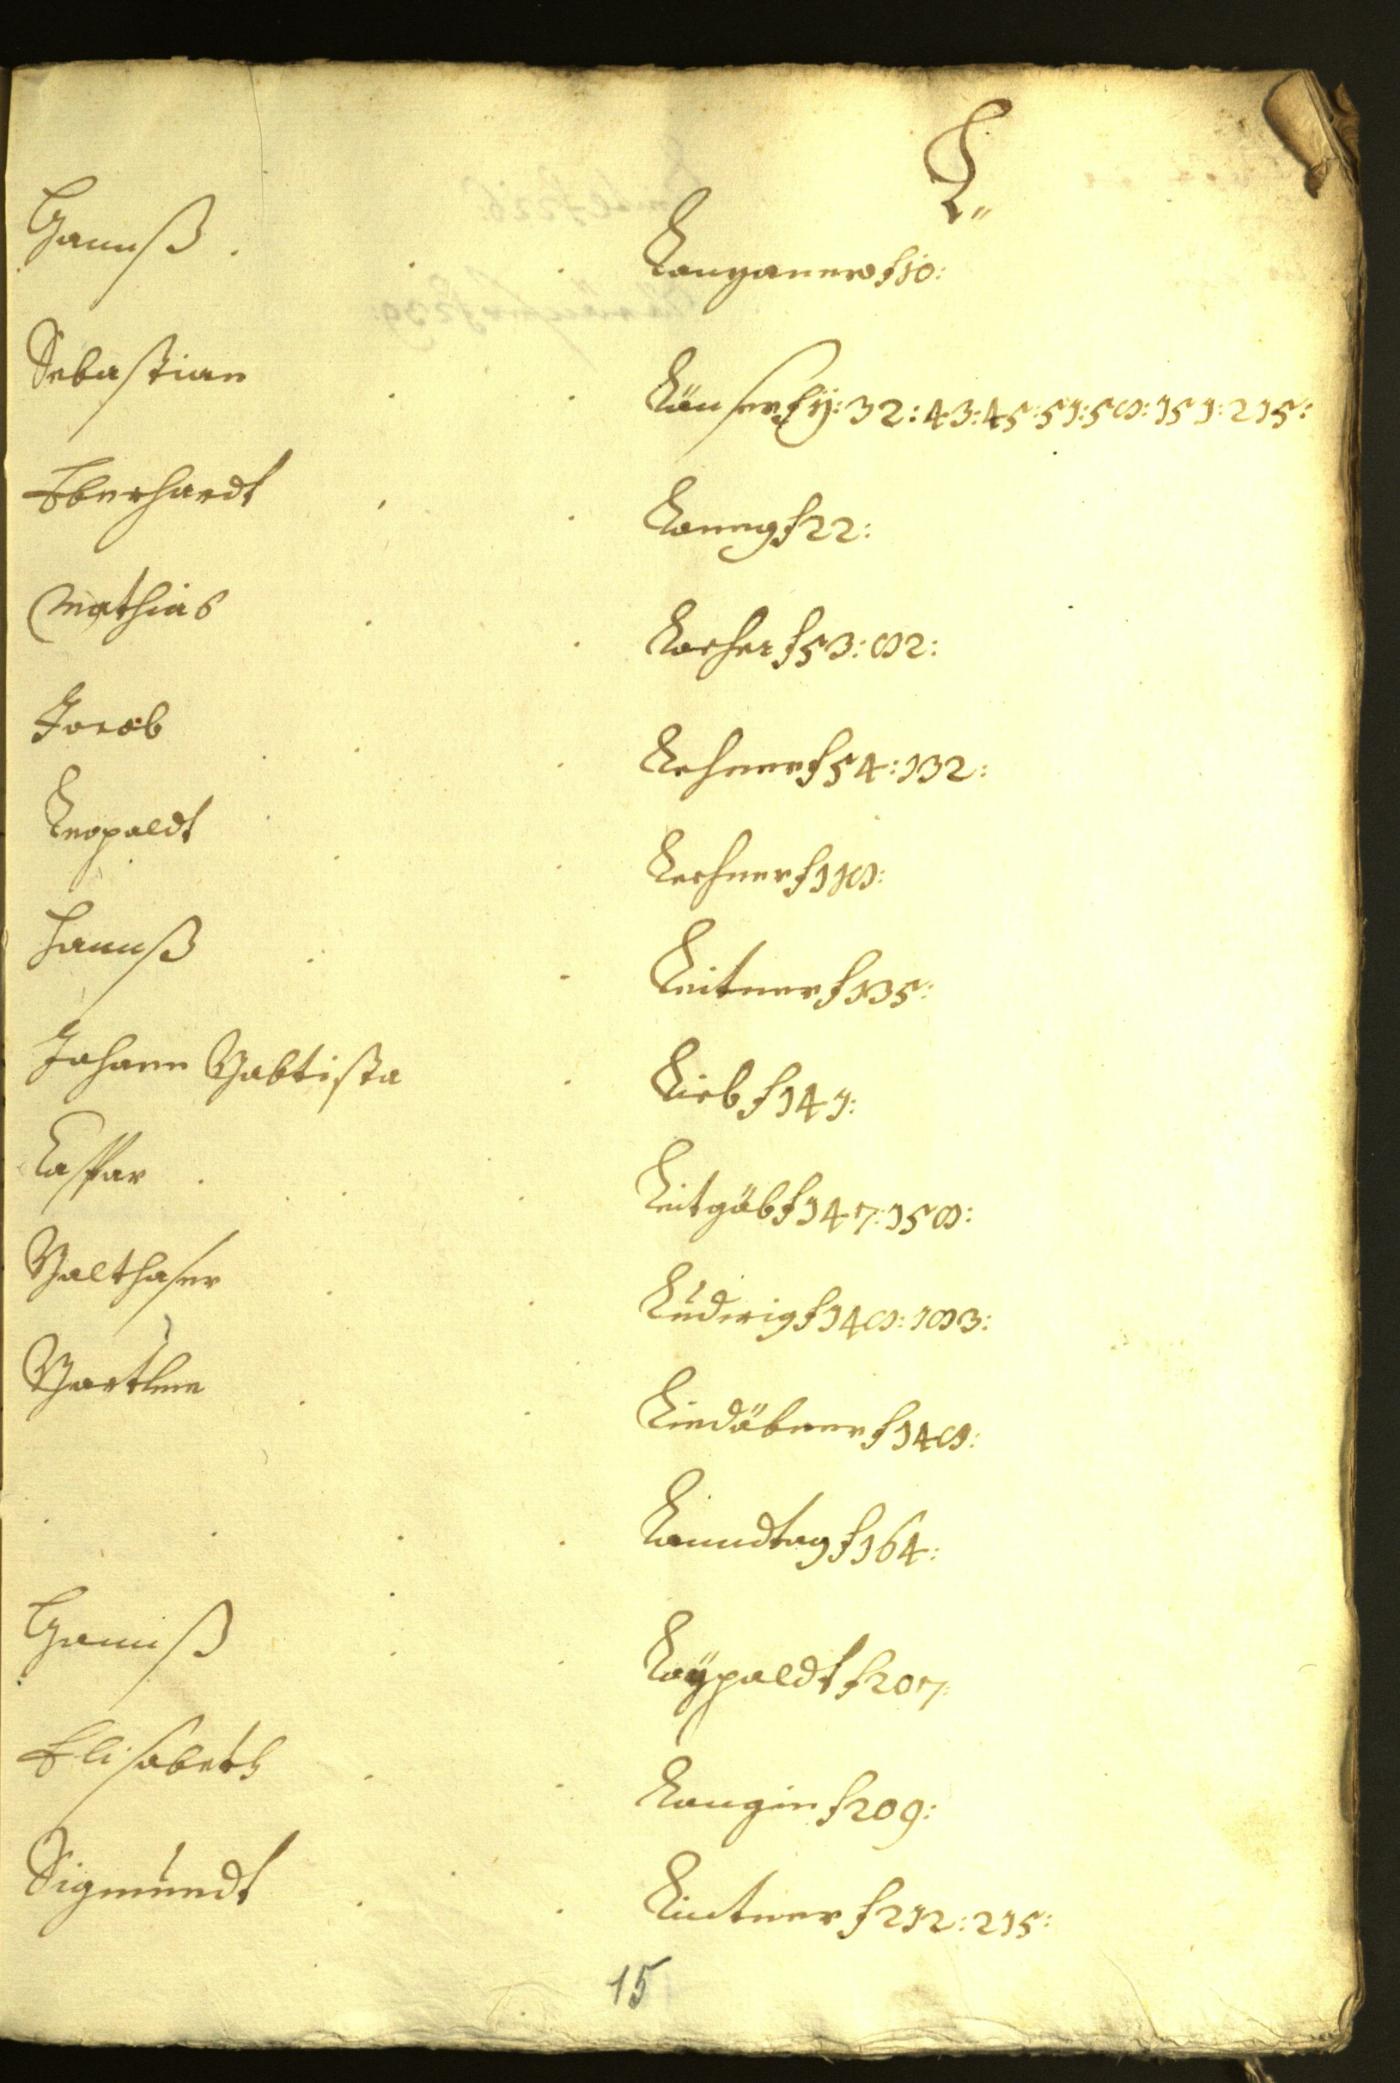 L
Hannß . . . f 10:
Sebastian . . f 32: 43: 45: 51: 58: 151: 215:
Eberhardt . . f 22:
Mathias . . Locher f 53: 82:
Jacob . . Lehner f 54: 132:
Leopoldt . . Lechner f 118:
Hannß . . Leitner f 135:
Johann Babtista . Lieb f 141:
Caspar . . Leitgäb f 147: 158:
Balthaser . . Ludwig f 148: 183:
Bartlme . . f 148:
. . . . Lanndtag f 164:
Hannß . . Laÿpoldt f 207:
Elisabeth . . Langin f 209:
Sigmundt . . Lintner f 212: 215:
15